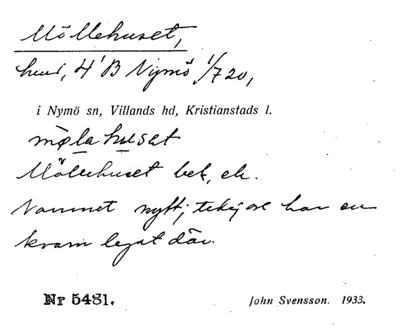 Möllehuset,
hus, 4'B Nymö 1/720,
i Nymö sn, Villands hd, Kristianstads l.
møla husat
Möllehuset bet. ek.
Namnet nytt; har en
kvarn legat där.
Nr 5481. John Svensson. 1933.